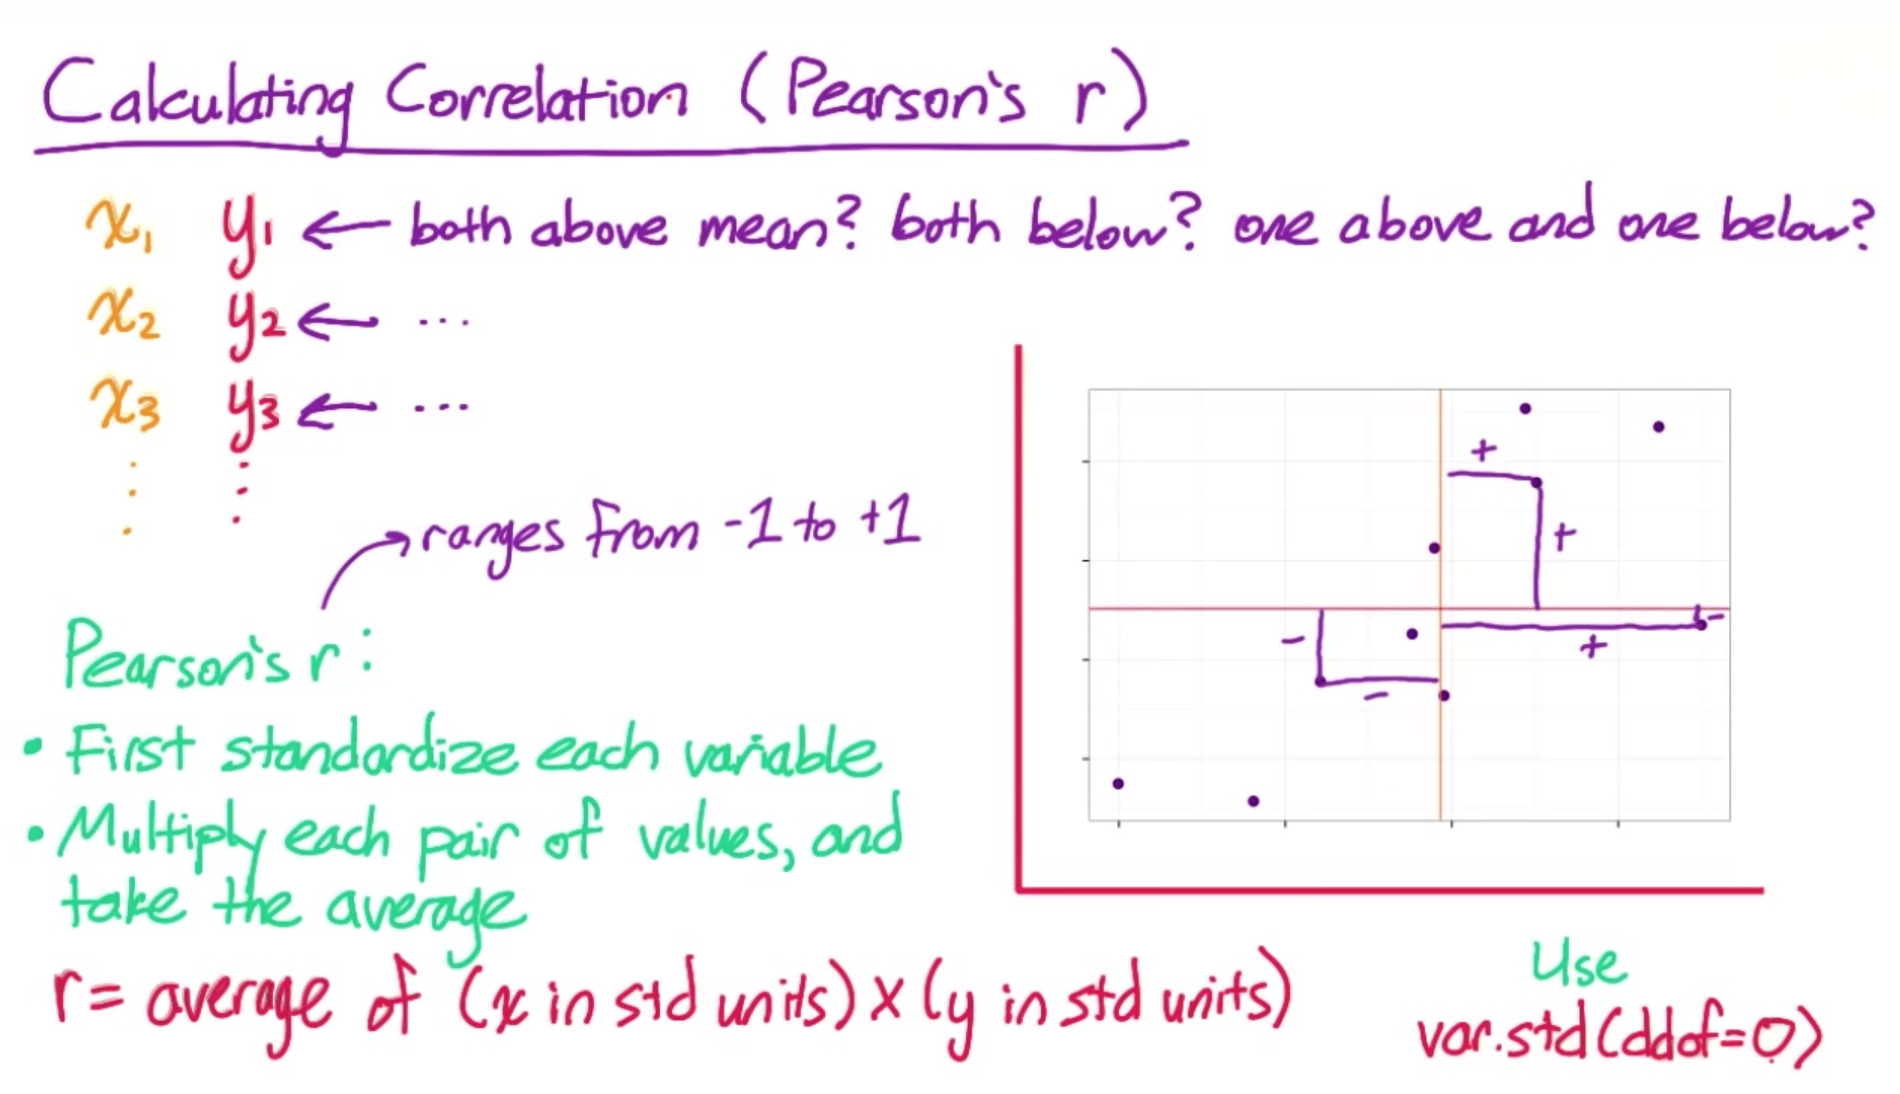 Calculating Correlation (Pearson's r)
x1 y1 ← both above mean? both below? one above and one below?
x2 y2 ← ...
x3 y3 ← ...
⋮ ⋮
→ ranges from -1 to +1
Pearson's r:
• First standardize each variable
• Multiply each pair of values, and
take the average
r = average of (x in std units) × (y in std units)
+
+
-
-
+
-
Use
var.std(ddof=0)